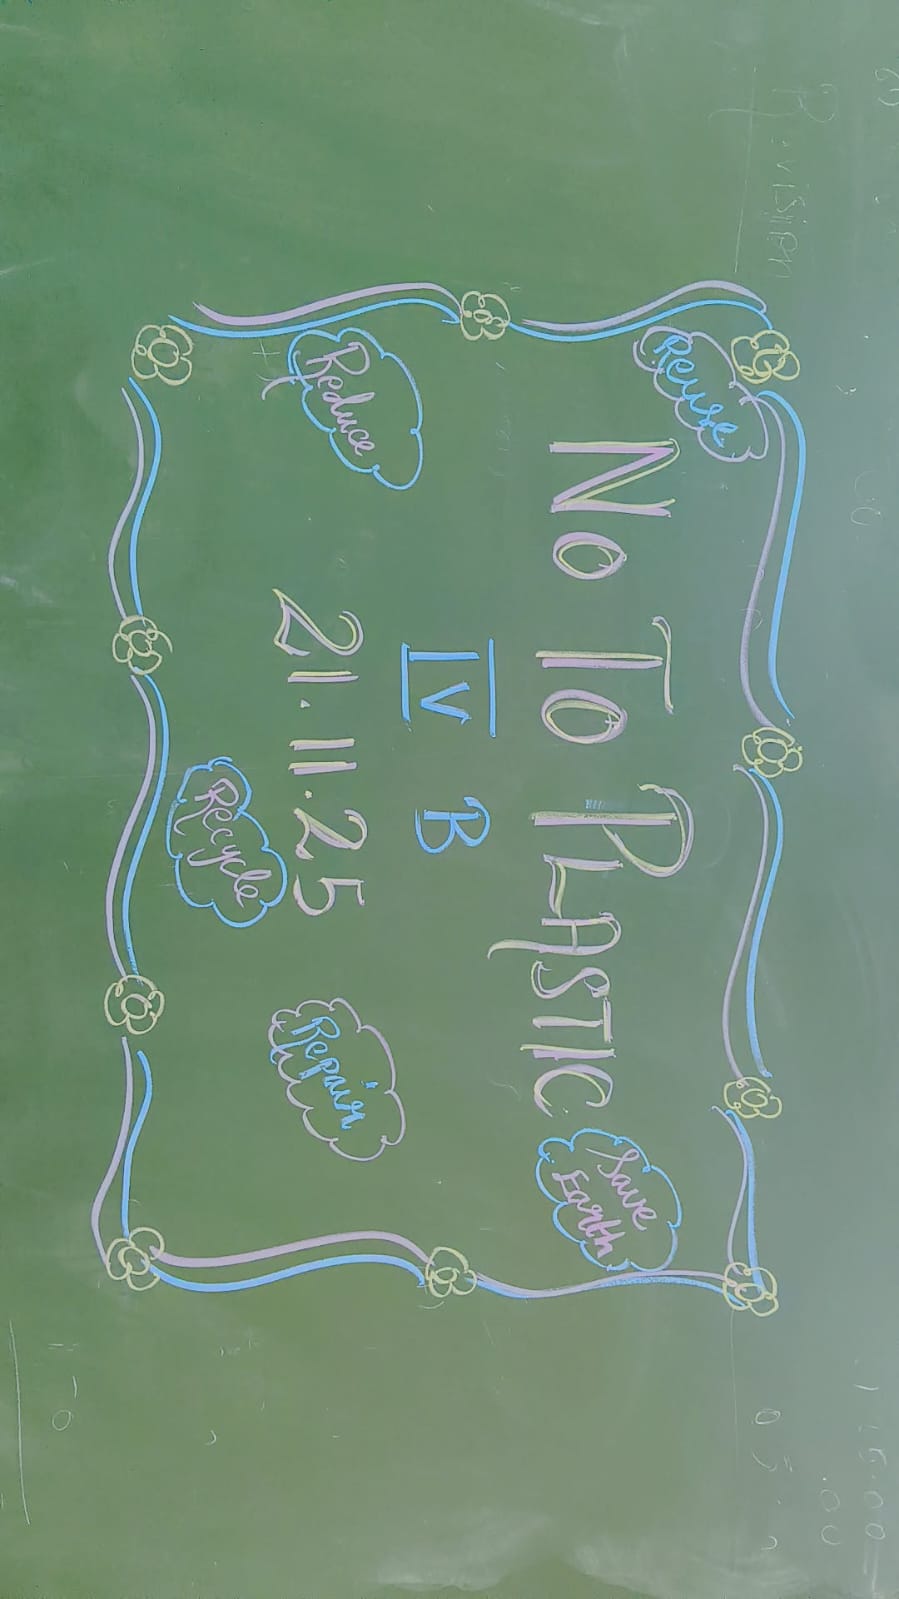 Reuse
No To PLASTIC
Save
Earth
IV B
Reduce
21.11.25
Repair
Recycle
Revision